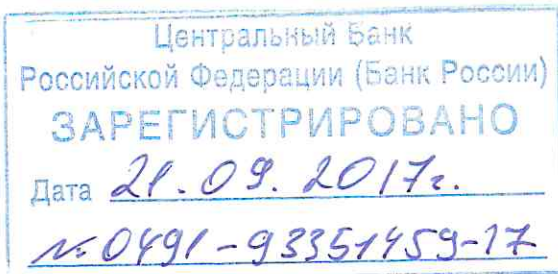 Центральный Банк
Российской Федерации (Банк России)
ЗАРЕГИСТРИРОВАНО
Дата 21.09.2017г.
№ 0491-93351459-17